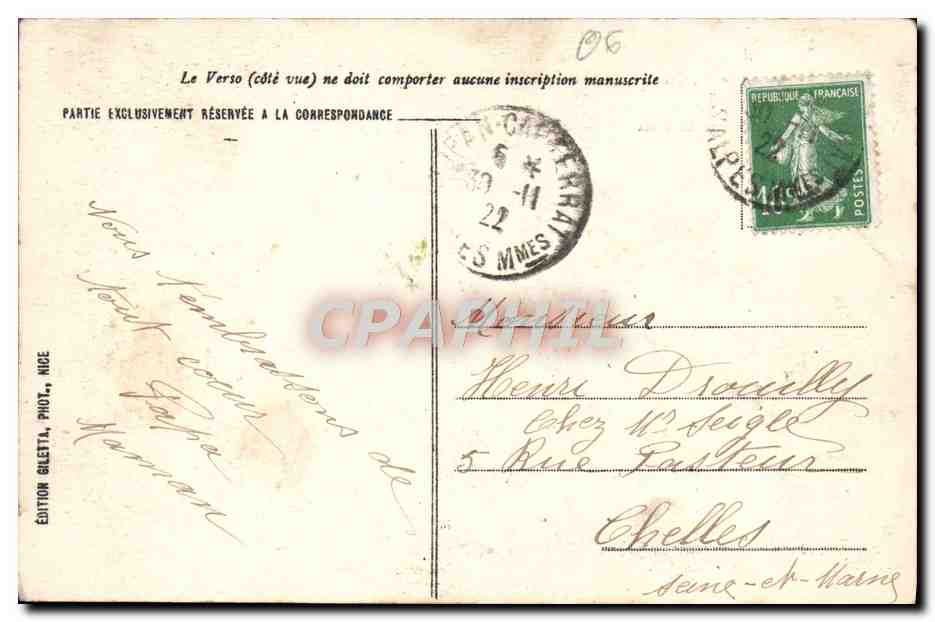 06
Le Verso (côté vue) ne doit comporter aucune inscription manuscrite
PARTIE EXCLUSIVEMENT RÉSERVÉE A LA CORRESPONDANCE
REPUBLIQUE FRANÇAISE
POSTES
10c
ALPES Mmes
22
6 *
30 -11
22
ES Mmes
Nous t'embrassons de
tout coeur
Papa
Maman
ÉDITION GILETTA, PHOT., NICE
CPAPHIL
Monsieur
Henri Drouilly
Chez Mr Seigle
5 Rue Pasteur
Chelles
Seine-et-Marne